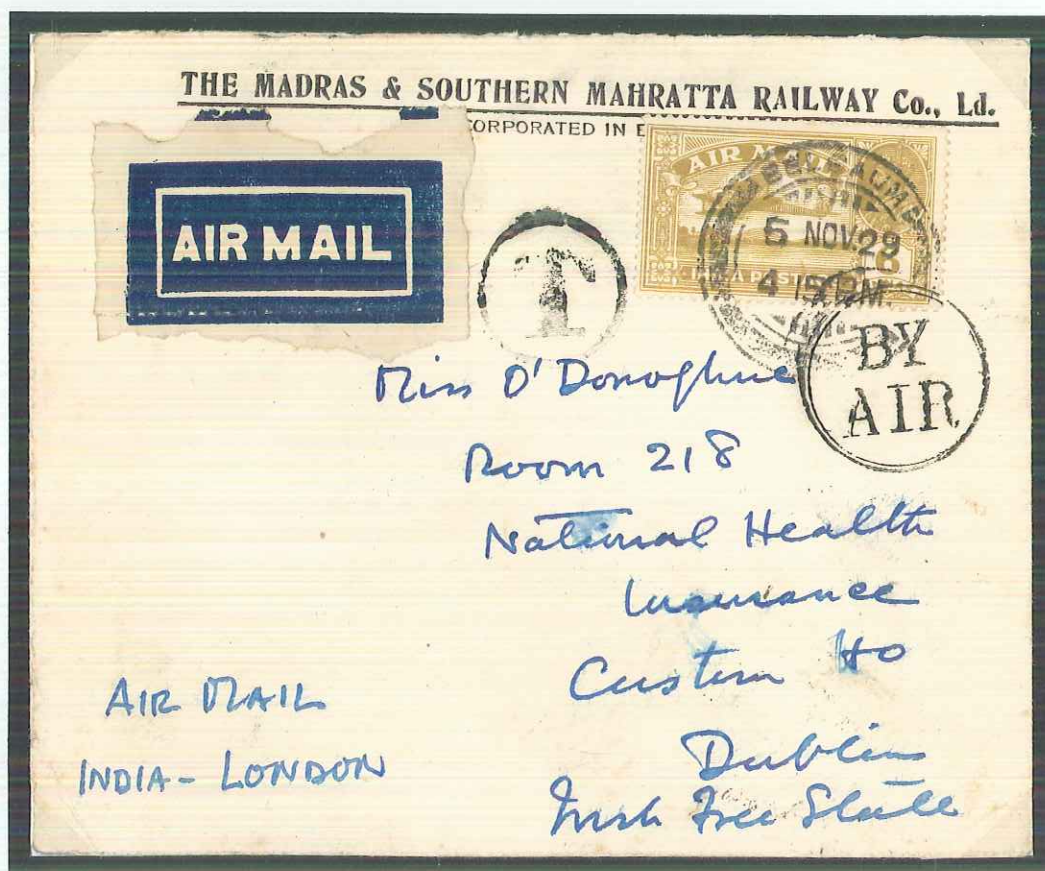 THE MADRAS & SOUTHERN MAHRATTA RAILWAY Co., Ld.
CORPORATED IN E
AIR MAIL
AIR MAIL
BELGAUM
5 NOV 29
4 15 P.M.
T
BY
AIR
Miss O'Donoghue
Room 218
National Health
Insurance
Custom Ho
Dublin
Irish Free State
AIR MAIL
INDIA - LONDON